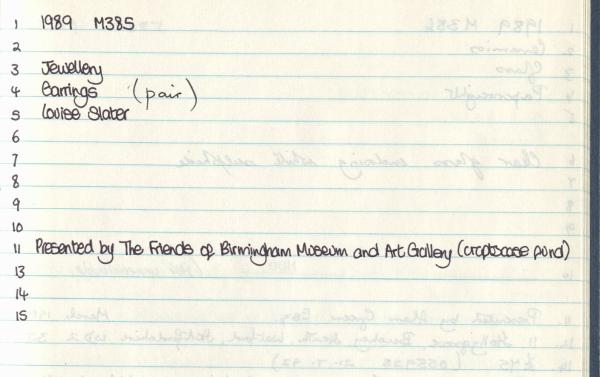 1 1989 M385
2
3 Jewellery
4 Earrings (pair)
5 Louise Slater
6
7
8
9
10
11 Presented by The Friends of Birmingham Museum and Art Gallery (craftscase fund)
13
14
15